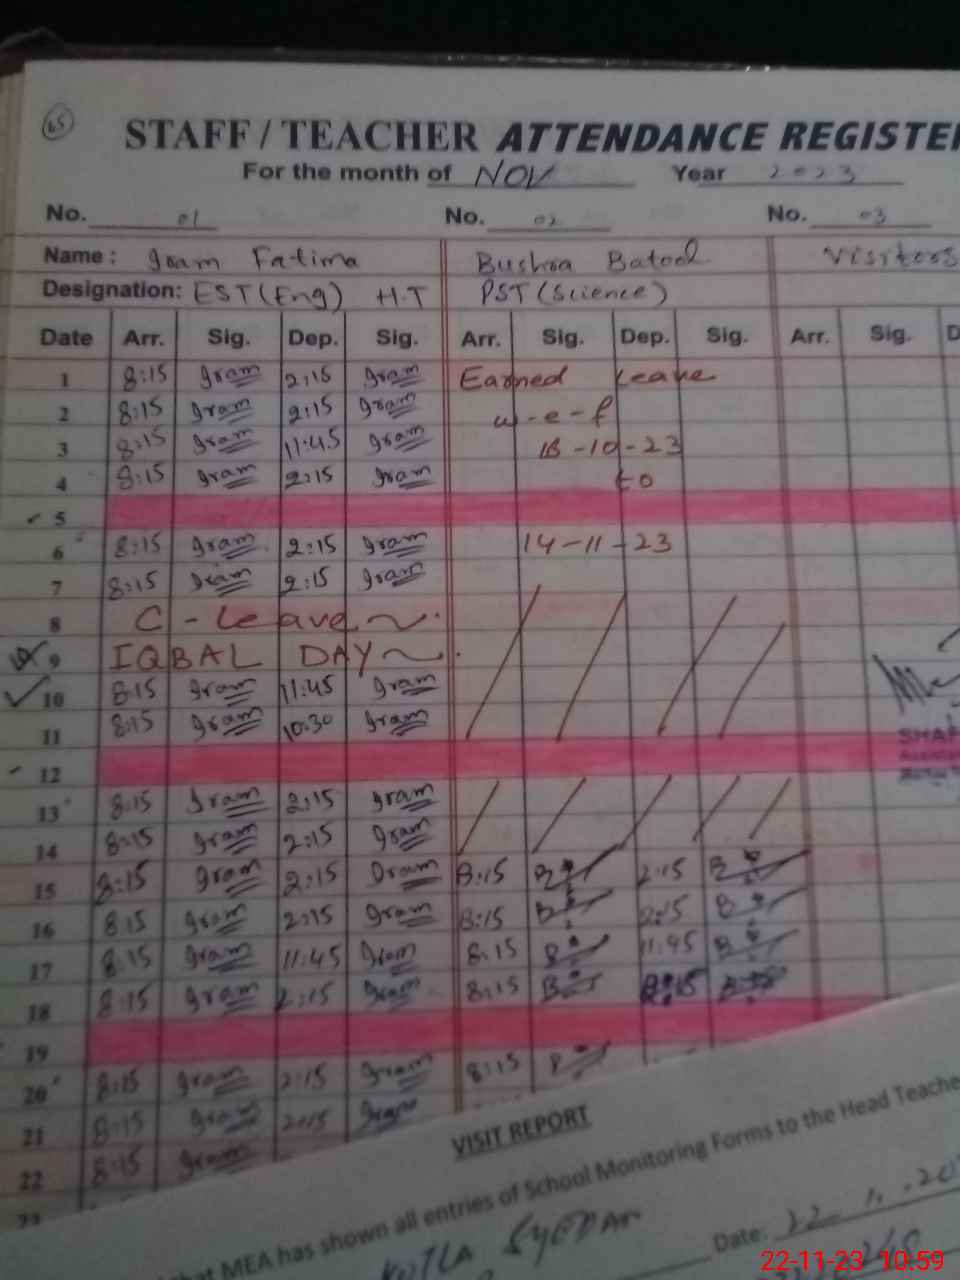 65
STAFF / TEACHER ATTENDANCE REGISTE
For the month of NOV Year 2023
No. 01 No. 02 No. 03
Name : Iram Fatima Bushra Batool Visitors
Designation: EST (Eng) H.T PST (Science)
Date Arr. Sig. Dep. Sig. Arr. Sig. Dep. Sig. Arr. Sig. D
1 8:15 Iram 2:15 Iram Earned Leave
2 8:15 Iram 2:15 Iram w-e-f
3 8:15 Iram 11:45 Iram 18-10-23
4 8:15 Iram 2:15 Iram to
5
6 8:15 Iram 2:15 Iram 14-11-23
7 8:15 Iram 2:15 Iram
8 C-Leave
9 IQBAL DAY
10 8:15 Iram 11:45 Iram
11 8:15 Iram 10:30 Iram
SHAF
12
13 8:15 Iram 2:15 Iram
14 8:15 Iram 2:15 Iram
15 8:15 Iram 2:15 Iram 8:15 2:15
16 8:15 Iram 2:15 Iram 8:15 2:15
17 8:15 Iram 11:45 Iram 8:15 11:45
18 8:15 Iram 2:15 Iram 8:15 2:15
19
20 8:15 Iram 2:15 Iram 8:15
21 8:15 Iram 2:15 Iram
22 8:15 Iram
23
VISIT REPORT
hat MEA has shown all entries of School Monitoring Forms to the Head Teache
KOTLA SYEDAN Date: 22
22-11-23 10:59